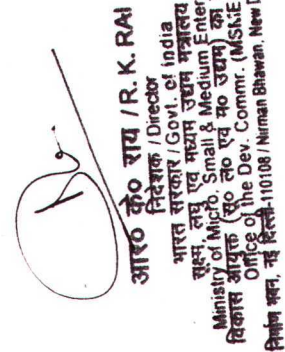 आर० के० राय / R. K. RAI
निदेशक / Director
भारत सरकार / Govt. of India
सूक्ष्म, लघु एवं मध्यम उद्यम मंत्रालय
Ministry of Micro, Small & Medium Enter
विकास आयुक्त (सू० ल० एवं म० उद्यम) का
Office of the Dev. Commr. (MSME
निर्माण भवन, नई दिल्ली-110108 / Nirman Bhawan, New D